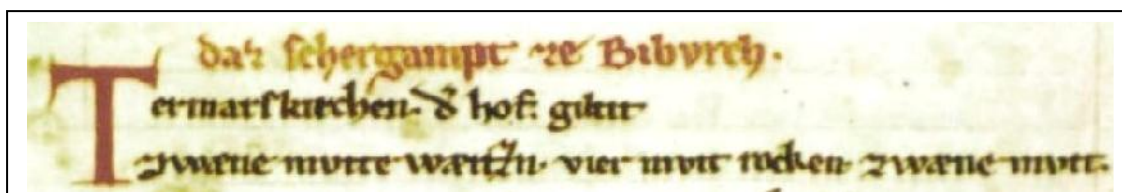 daz schergampt ze Biburch.
Termarskirchen. d' hof. giltit
zwæne mvtte wæitzn. vier mvtt rocken. zwæne mvtt.